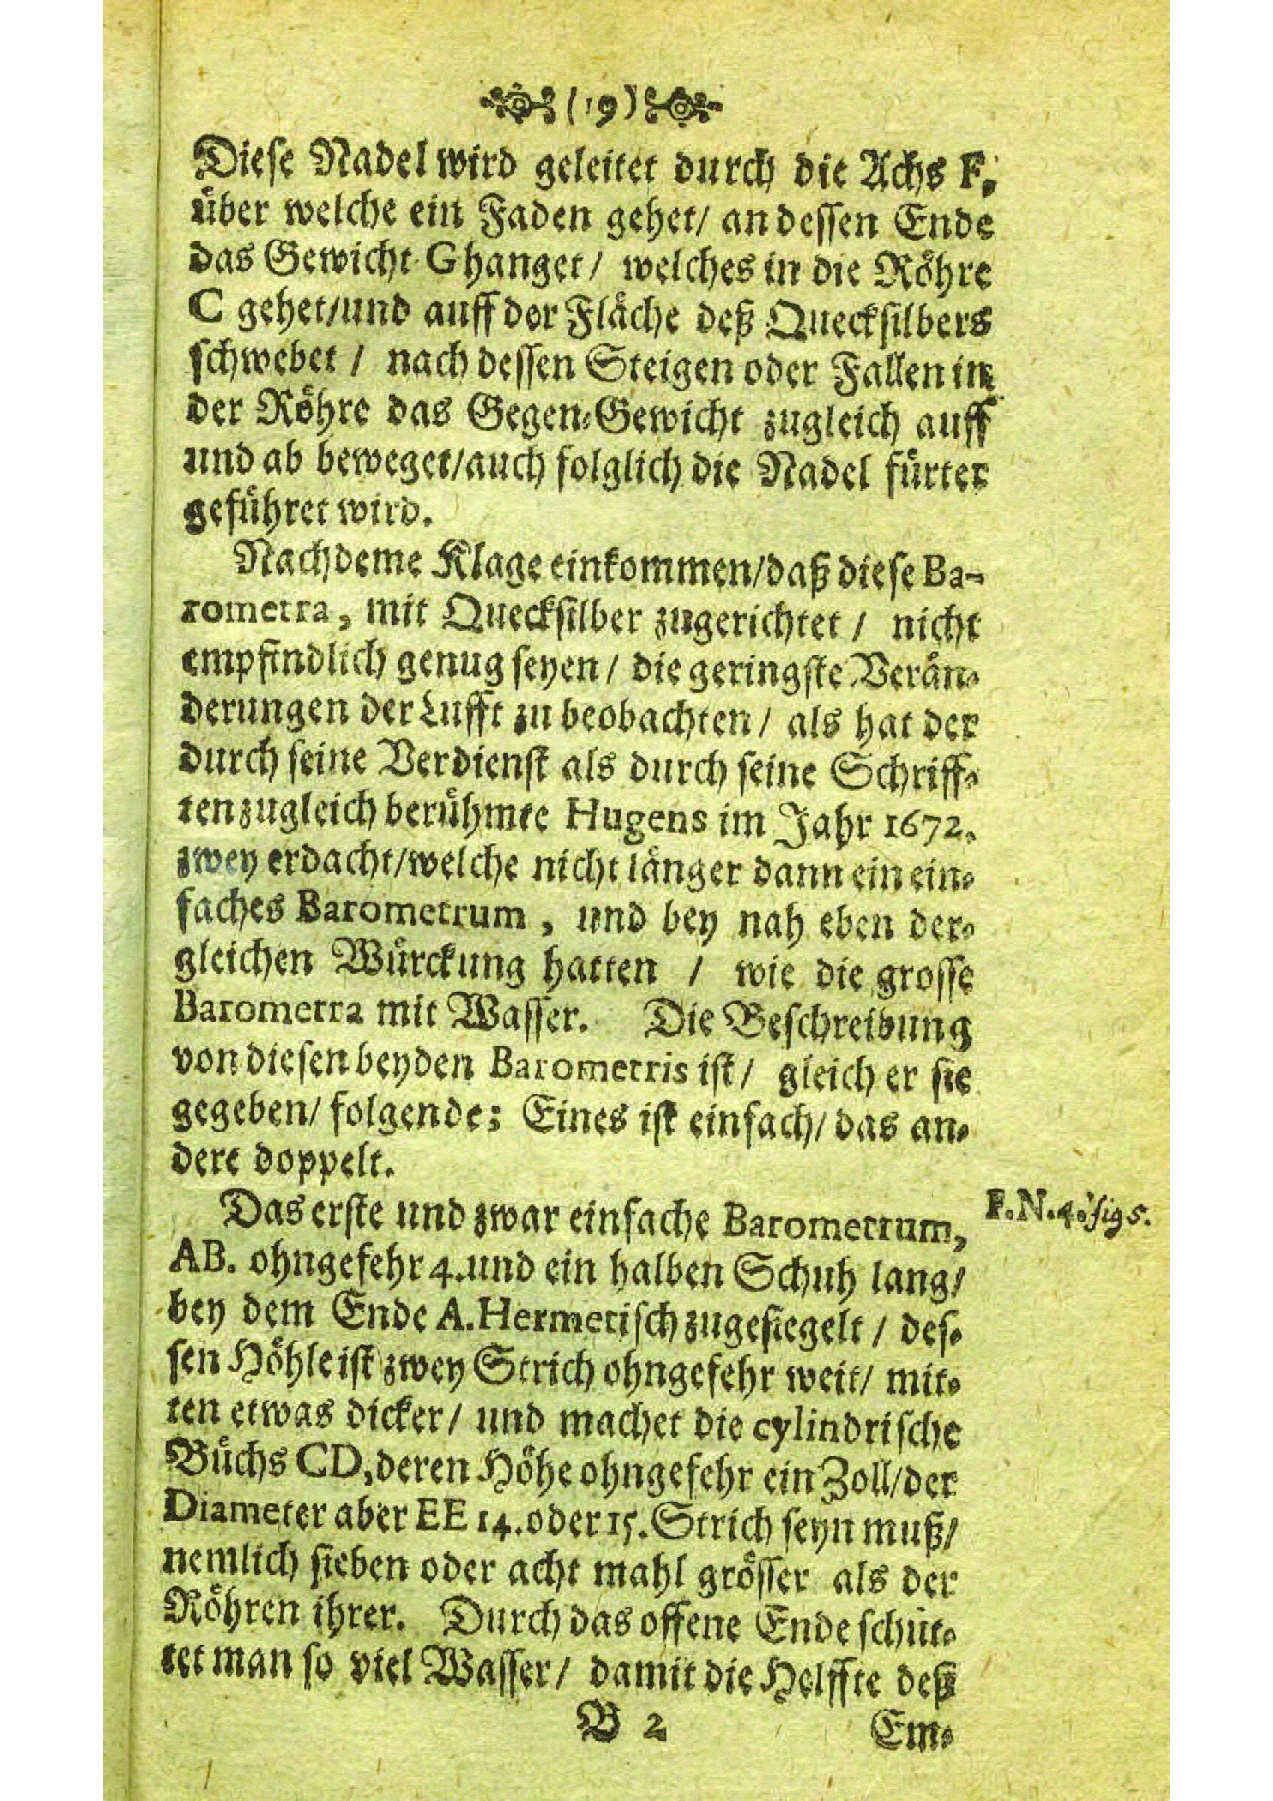 (19)
Diese Nadel wird geleitet durch die Achs F,
über welche ein Faden gehet/ an dessen Ende
das Gewicht G hanget/ welches in die Röhre
C gehet/und auff der Fläche deß Quecksilbers
schwebet / nach dessen Steigen oder Fallen in
der Röhre das Gegen-Gewicht zugleich auff
und ab beweget/auch folglich die Nadel fürter
geführet wird.
Nachdeme Klage einkommen/daß diese Ba-
rometra, mit Quecksilber zugerichtet / nicht
empfindlich genug seyen / die geringste Verän-
derungen der Lufft zu beobachten / als hat der
durch seine Verdienst als durch seine Schriff-
ten zugleich berühmte Hugens im Jahr 1672.
zwey erdacht/welche nicht länger dann ein ein-
faches Barometrum, und bey nah eben der-
gleichen Würckung hatten / wie die grosse
Barometra mit Wasser. Die Beschreibung
von diesen beyden Barometris ist/ gleich er sie
gegeben/ folgende; Eines ist einfach/ das an-
dere doppelt.
Das erste und zwar einfache Barometrum,
F.N.4. fig 5.
AB. ohngefehr 4. und ein halben Schuh lang/
bey dem Ende A. Hermetisch zugesiegelt / des-
sen Höhle ist zwey Strich ohngefehr weit/ mit-
ten etwas dicker/ und machet die cylindrische
Büchs CD, deren Höhe ohngefehr ein Zoll/der
Diameter aber EE 14. oder 15. Strich seyn muß/
nemlich sieben oder acht mahl grösser als der
Röhren ihrer. Durch das offene Ende schüt-
tet man so viel Wasser/ damit die Helffte deß
B 2
Em-